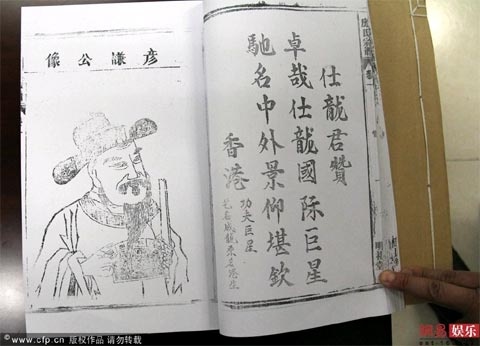 仕龍君贊
卓哉仕龍國際巨星
馳名中外景仰堪欽
香港
功夫巨星
名成龍
彥謙公像
© www.cfp.cn 版权作品 请勿转载
網易 娱乐